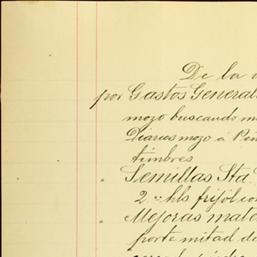 De la
por Gastos General
mozo buscando m
Diarios mozo á
timbres
" Semillas Sta
2 hls frijol co
" Mejoras mate
porte mitad d